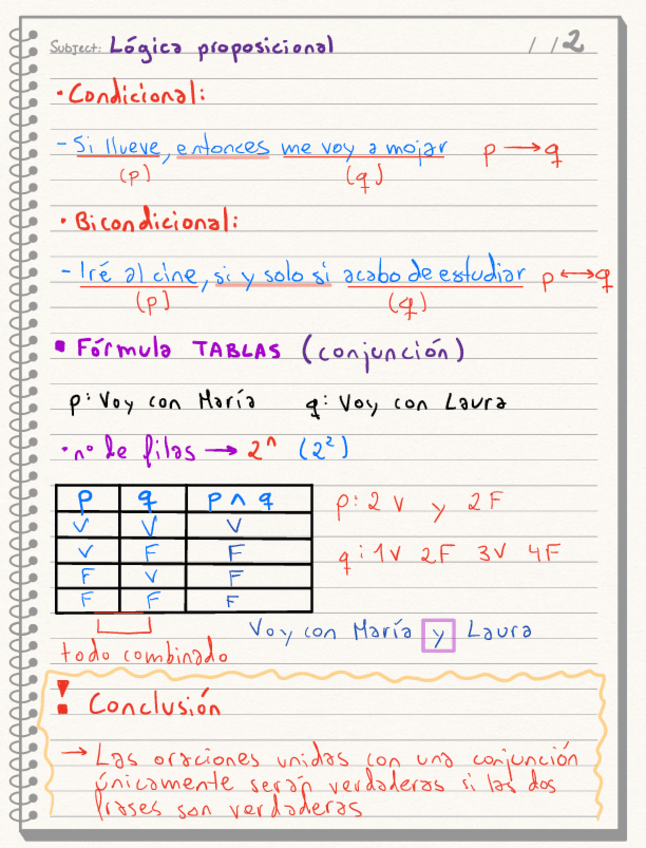 Subject: Lógica proposicional / / 2
• Condicional:
- Si llueve, entonces me voy a mojar p → q
(p) (q)
• Bicondicional:
- Iré al cine, si y solo si acabo de estudiar p ↔ q
(p) (q)
▪ Fórmula TABLAS (conjunción)
p: Voy con María q: Voy con Laura
• nº de filas → 2ⁿ (2²)
p q p ∧ q
V V V
V F F
F V F
F F F
p: 2 V y 2 F
q: 1V 2F 3V 4F
todo combinado
Voy con María y Laura
! Conclusión
→ Las oraciones unidas con una conjunción
únicamente serán verdaderas si las dos
frases son verdaderas